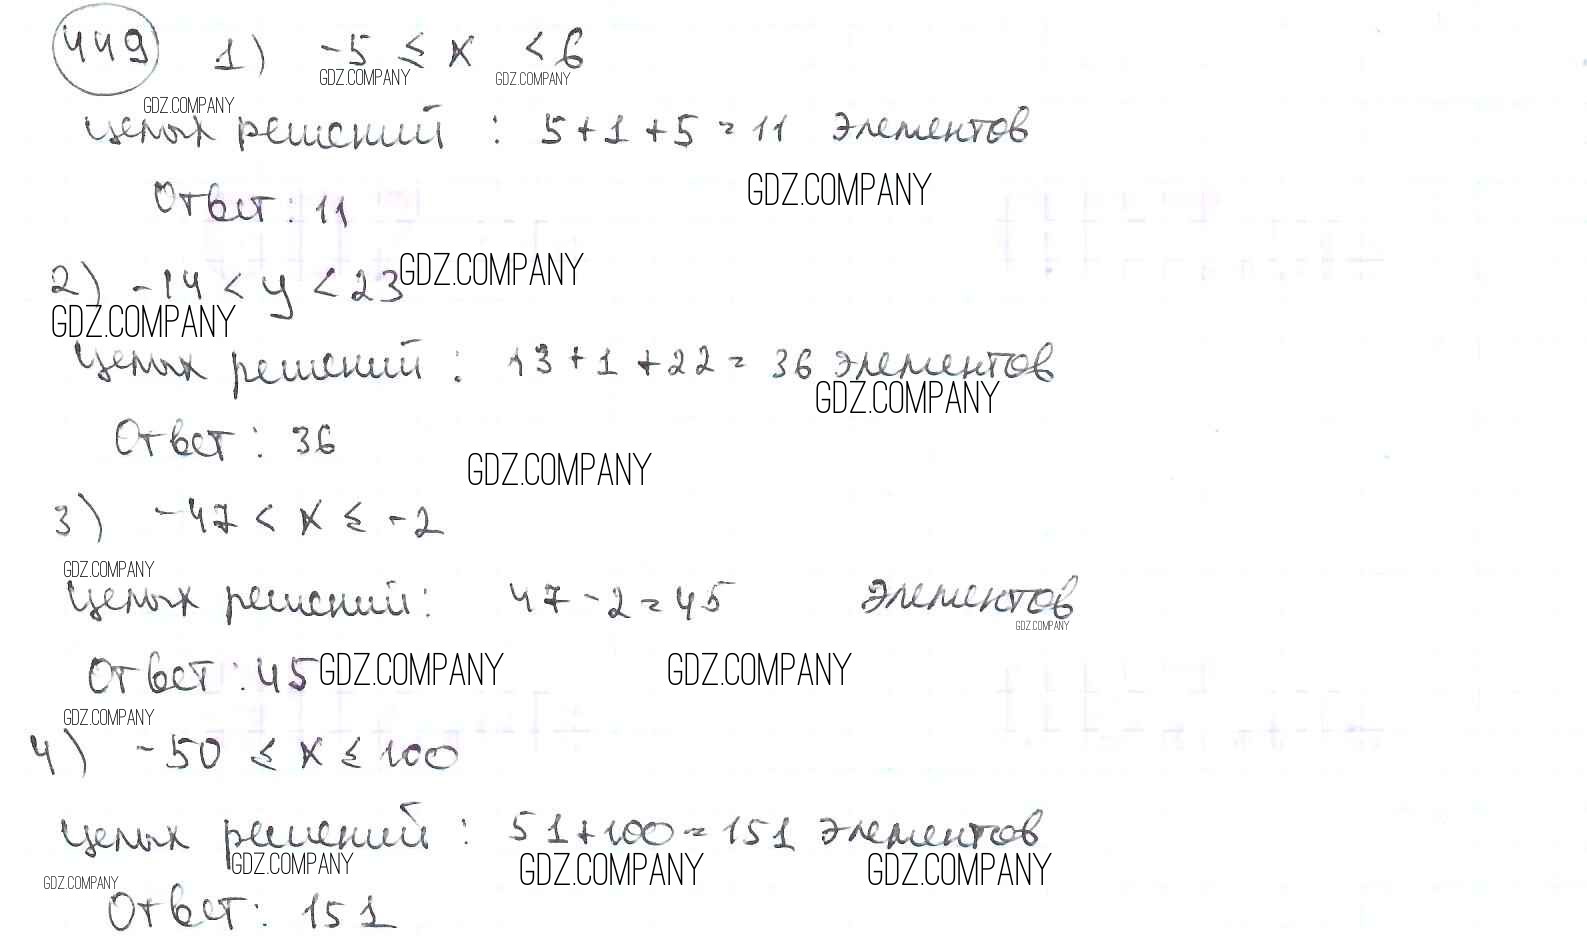 449 1) -5 ≤ x < 6
GDZ.COMPANY GDZ.COMPANY
GDZ.COMPANY
целых решений : 5+1+5=11 элементов
GDZ.COMPANY
Ответ: 11
2) -14 < y < 23 GDZ.COMPANY
GDZ.COMPANY
целых решений : 13+1+22= 36 элементов
GDZ.COMPANY
Ответ: 36
GDZ.COMPANY
3) -47 < x ≤ -2
GDZ.COMPANY
целых решений: 47-2=45 элементов
GDZ.COMPANY
Ответ: 45 GDZ.COMPANY GDZ.COMPANY
GDZ.COMPANY
4) -50 ≤ x ≤ 100
целых решений : 51+100=151 элементов
GDZ.COMPANY GDZ.COMPANY GDZ.COMPANY
GDZ.COMPANY
Ответ: 151